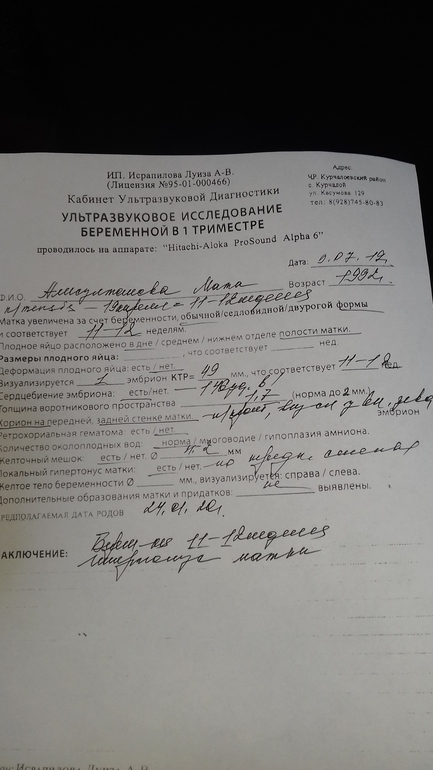 ИП. Исрапилова Луиза А-В.
(Лицензия №95-01-000466)
Кабинет Ультразвуковой Диагностики
Адрес:
Ч.Р. Курчалоевский район
с. Курчалой
ул. Касумова 129
тел: 8(928)745-80-83
УЛЬТРАЗВУКОВОЕ ИССЛЕДОВАНИЕ
БЕРЕМЕННОЙ В 1 ТРИМЕСТРЕ
проводилось на аппарате: "Hitachi-Aloka ProSound Alpha 6"
Дата:
Ф.И.О. Возраст 1992г.
11-12 неделя
Матка увеличена за счет беременности, обычной/седловидной/двурогой формы
и соответствует 11-12 неделям.
Плодное яйцо расположено в дне / среднем / нижнем отделе полости матки.
Размеры плодного яйца: , что соответствует нед
Деформация плодного яйца: есть / нет.
Визуализируется 1 эмбрион КТР= 49 мм., что соответствует 11-12 нед
Сердцебиение эмбриона: есть/нет.
Толщина воротникового пространства 1,7 (норма до 2 мм.)
Хорион на передней, задней стенке матки. эмбрион
Ретрохориальная гематома: есть / нет
Количество околоплодных вод: норма / многоводие / гипоплазия амниона.
Желточный мешок: есть / нет. Ø мм
Локальный гипертонус матки: есть / нет. по передн. стенке
Желтое тело беременности Ø мм., визуализируется: справа / слева.
Дополнительные образования матки и придатков: не выявлены.
ПРЕДПОЛАГАЕМАЯ ДАТА РОДОВ 24.01.20г.
ЗАКЛЮЧЕНИЕ: 11-12 неделя
гипертонус матки